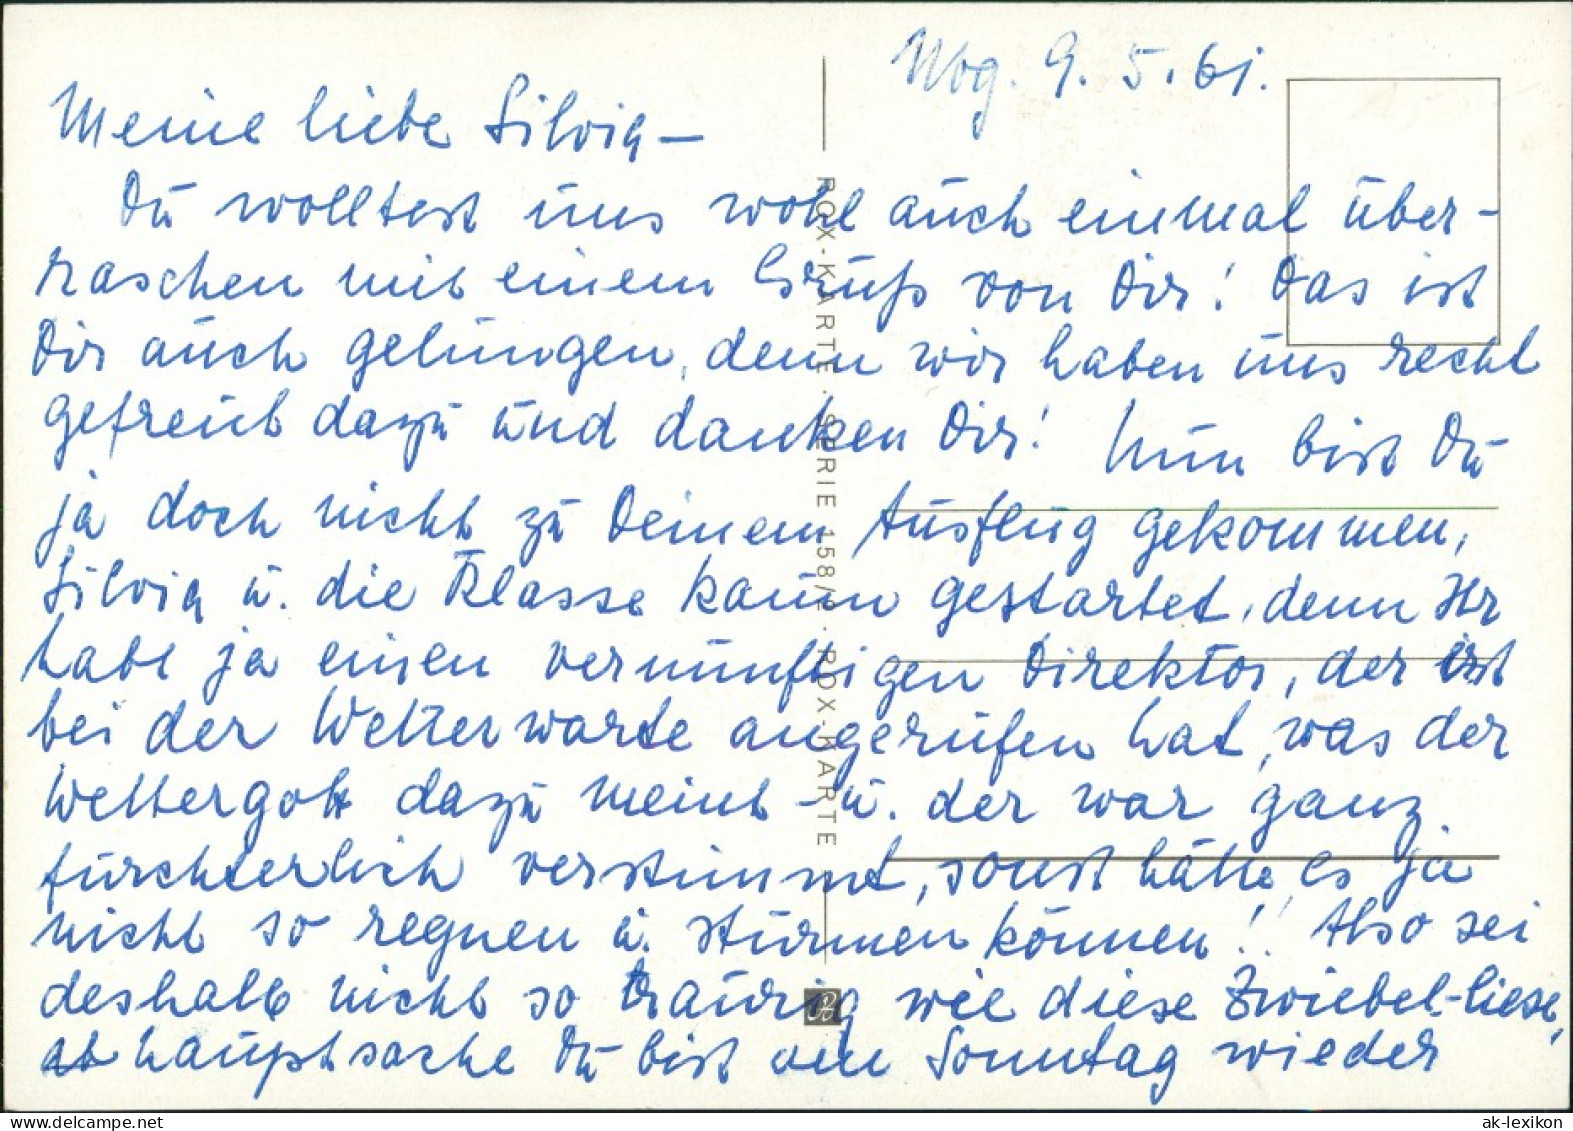 Mbg. 9. 5. 61.
Meine liebe Silvia –
Du wolltest uns wohl auch einmal über-
raschen mit einem Gruß von Dir! Das ist
Dir auch gelungen, denn wir haben uns recht
gefreut dazu und danken Dir! Nun bist Du
ja doch nicht zu Deinem Ausflug gekommen,
Silvia u. die Klasse kaum gestartet, denn Ihr
habt ja einen vernünftigen Direktor, der erst
bei der Wetterwarte angerufen hat, was der
Wettergott dazu meint – u. der war ganz
fürchterlich verstimmt, sonst hätte es ja
nicht so regnen u. stürmen können! Also sei
deshalb nicht so traurig wie diese Zwiebel-liese,
hauptsache Du bist am Sonntag wieder
ROX-KARTE · SERIE 158/2 · ROX-KARTE
ak-lexikon